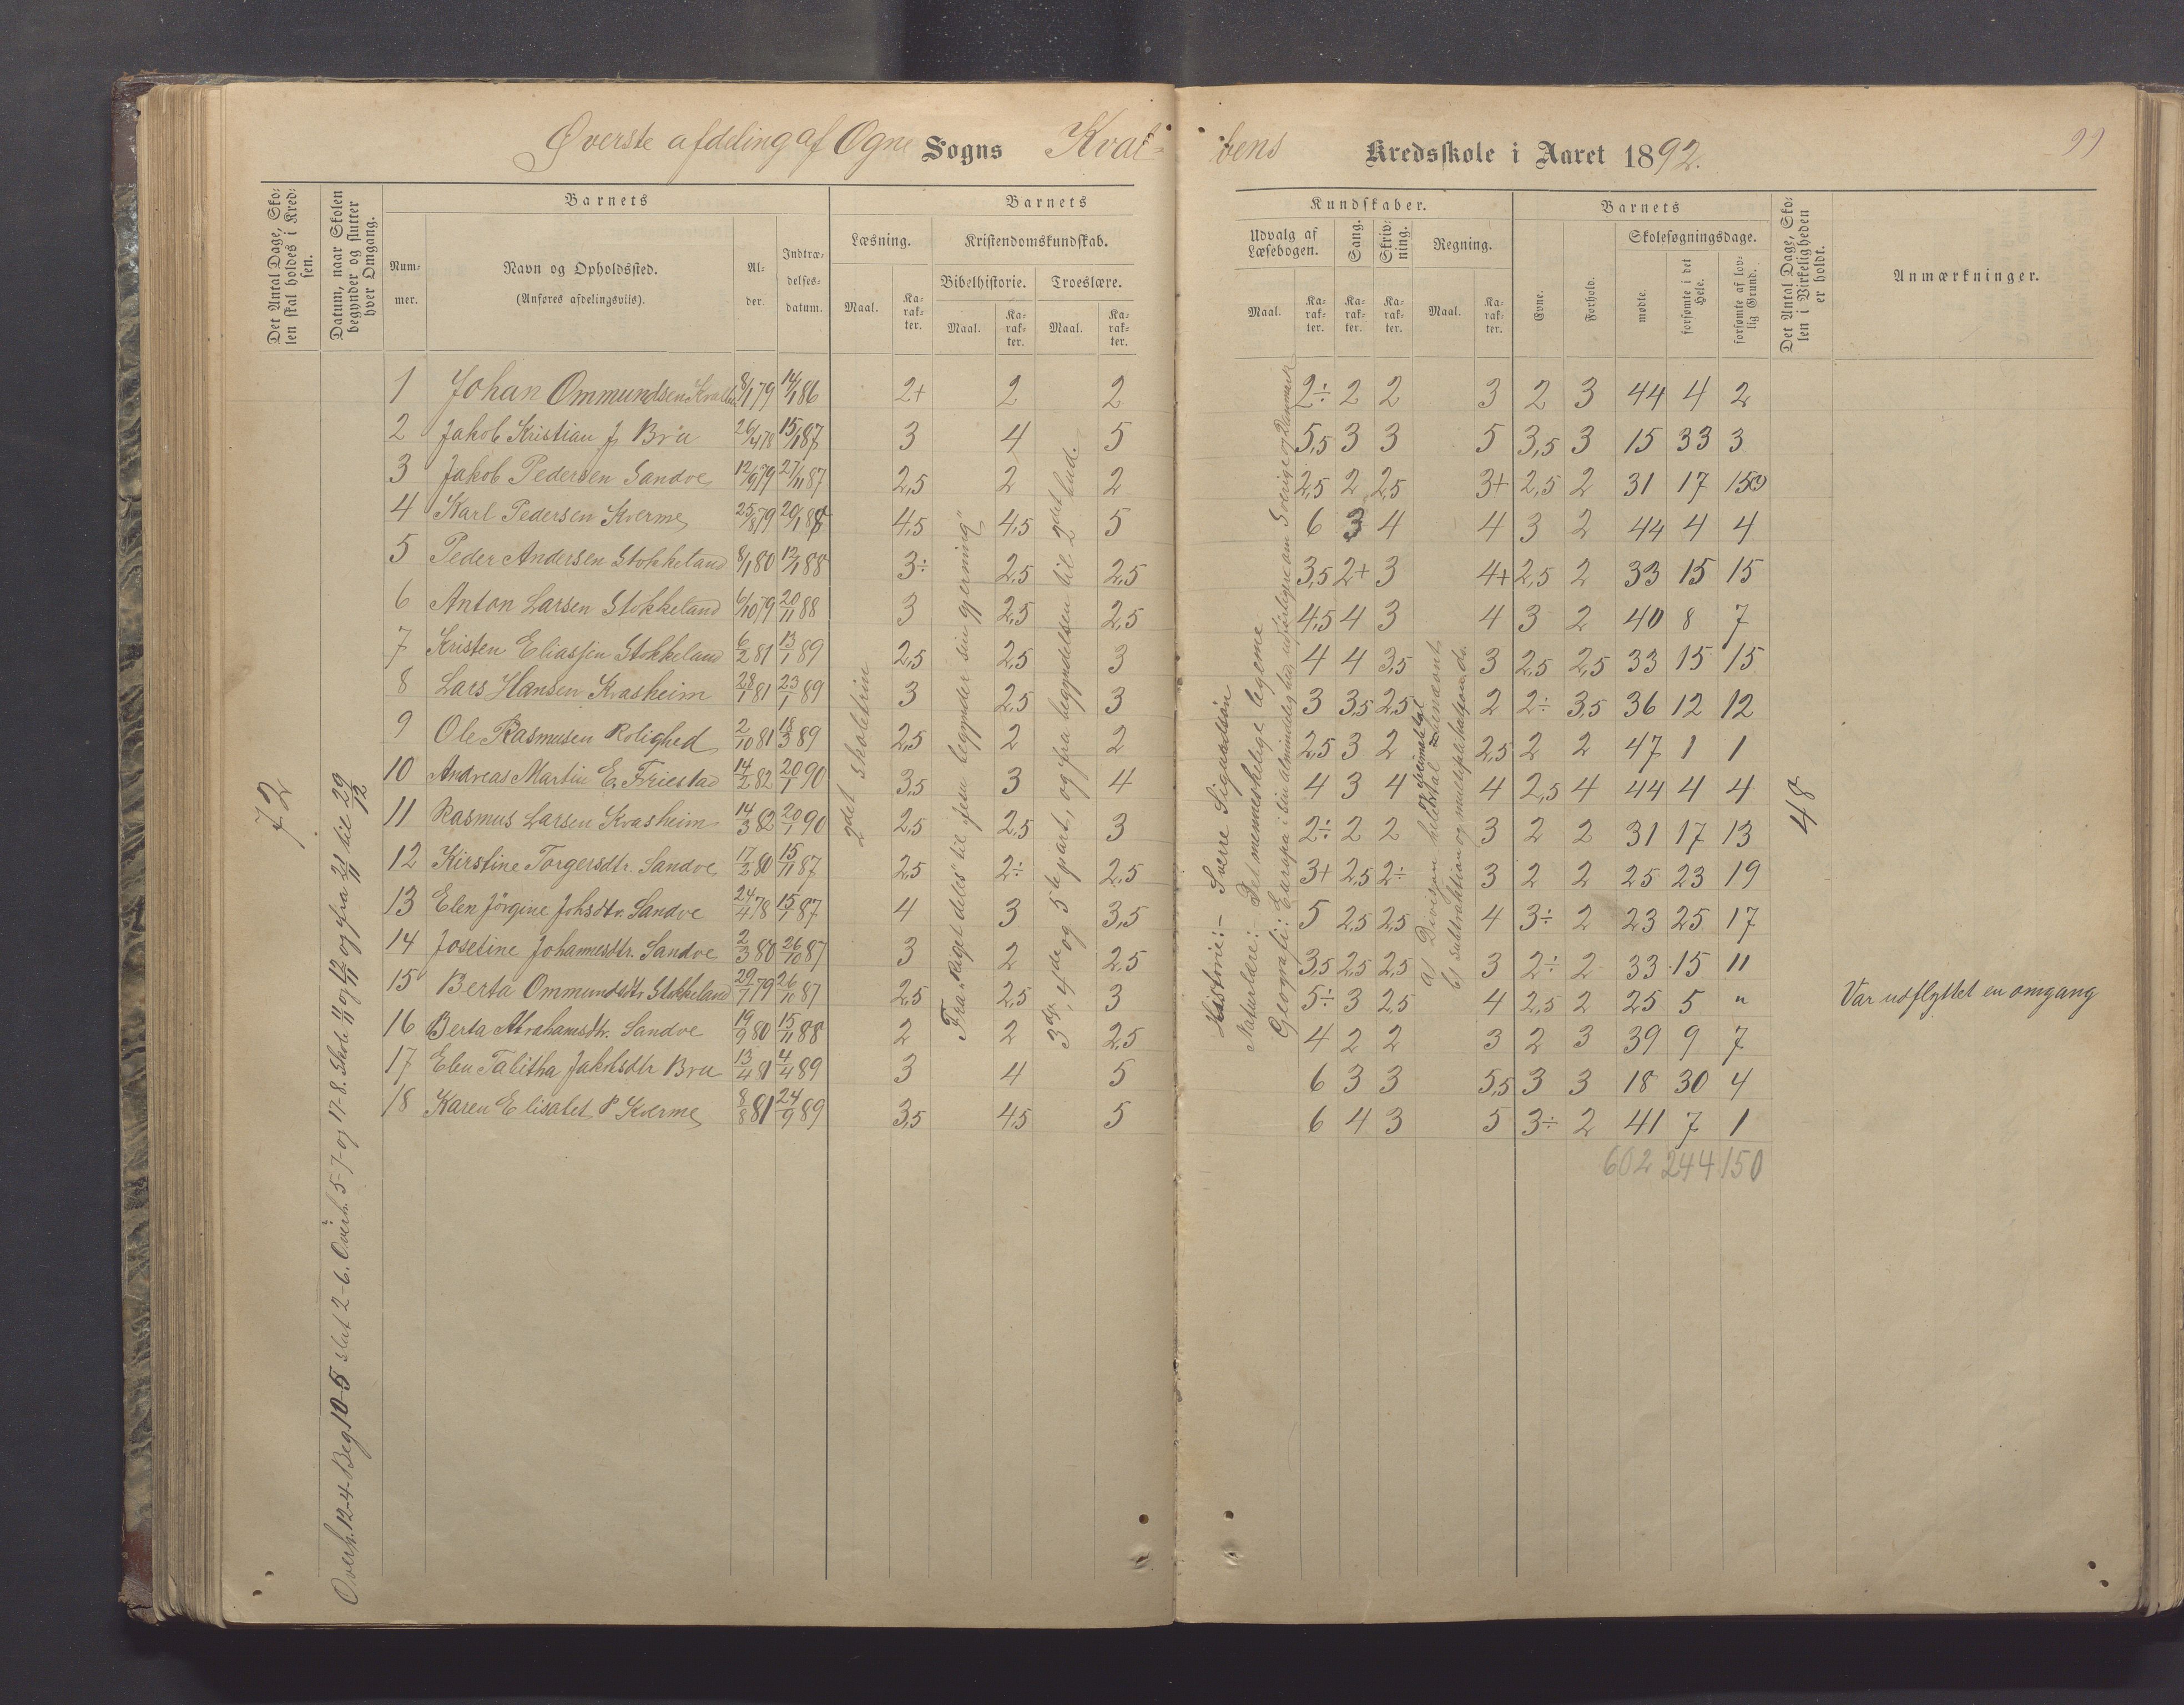 Øverste afdeling af Ogne Sogns Kval-
bens Kredsskole i Aaret 1892.
99
Det Antal Dage, Sko-
len skal holdes i Kred-
sen.
Datum, naar Skolen
begynder og slutter
hver Omgang.
Barnets
Num-
mer.
Navn og Opholdssted.
(Anføres afdelingsviis).
Al-
der.
Indtræ-
delses-
datum.
Barnets
Læsning.
Maal.
Ka-
rak-
ter.
Kristendomskundskab.
Bibelhistorie.
Maal.
Ka-
rak-
ter.
Troeslære.
Maal.
Ka-
rak-
ter.
Kundskaber.
Udvalg af
Læsebogen.
Maal.
Ka-
rak-
ter.
Sang.
Ka-
rak-
ter.
Skriv-
ning.
Ka-
rak-
ter.
Regning.
Maal.
Ka-
rak-
ter.
Barnets
Evne.
Forhold.
Skolesøgningsdage.
mødte.
forsømte i det
Hele.
forsømte af lov-
lig Grund.
Det Antal Dage, Sko-
len i Virkeligheden
er holdt.
Anmærkninger.
72
Overh. 12-4. Beg. 10-5 slut 2-6. Överh. 5-7 og 17-8. Skole 11/11 og 12/11 og fra 21/11 til 29/12
2det skoletrin
Fra "Riget deles" til "Jesu begynder sin gjerning"
3die, 4de og 5te part, og fra begyndelsen til 2det bud.
Historie:- Sverre Sigurdsön
Naturlære: Det menneskelige legeme
Geografi: Europa i sin almindelighed, udförligere om Sverige og Danmark
a) Divisjon heletal Decimaltal
b) subtraktion og multiplikasjon do.
1 Johan Ommundsen Kvalben 8/1 79 14/1 86 2+ 2 2 2÷ 2 2 3 2 3 44 4 2
2 Jakob Kristian J. Bru 26/4 78 15/1 87 3 4 5 5,5 3 3 5 3,5 3 15 33 3
3 Jakob Pedersen Sandve 12/9 79 27/11 87 2,5 2 2 2,5 2 2,5 3+ 2,5 2 31 17 15
4 Karl Pedersen Kverme 25/8 79 20/1 88 4,5 4,5 5 6 3 4 4 3 2 44 4 4
5 Peder Andersen Stokkeland 8/1 80 12/1 88 3÷ 2,5 2,5 3,5 2+ 3 4+ 2,5 2 33 15 15
6 Anton Larsen Stokkeland 6/10 79 20/11 88 3 2,5 2,5 4,5 4 3 4 3 2 40 8 7
7 Kristen Eliassen Stokkeland 6/2 81 13/1 89 2,5 2,5 3 4 4 3,5 3 2,5 2,5 33 15 15
8 Lars Hansen Kvasheim 28/1 81 23/1 89 3 2,5 3 3 3,5 2,5 2 2÷ 3,5 36 12 12
9 Ole Rasmusen Rolighed 2/10 81 18/3 89 2,5 2 2 2,5 3 2 2,5 2 2 47 1 1
10 Andreas Martin E. Friestad 14/2 82 20/1 90 3,5 3 4 4 3 4 4 2,5 4 44 4 4
11 Rasmus Larsen Kvasheim 14/3 82 20/1 90 2,5 2,5 3 2÷ 2 2 3 2 2 31 17 13
12 Kirstine Torgersdtr. Sandve 17/2 80 15/11 87 2,5 2÷ 2,5 3+ 2,5 2÷ 3 2 2 25 23 19
13 Elen Jörgine Johsdtr. Sandve 24/4 78 15/1 87 4 3 3,5 5 2,5 2,5 4 3÷ 2 23 25 17
14 Josefine Johannesdtr. Sandve 2/3 80 26/10 87 3 2 2,5 3,5 2,5 2,5 3 2÷ 2 33 15 11
15 Berta Ommundsdtr Stokkeland 29/7 79 26/10 87 2,5 2,5 3 5÷ 3 2,5 4 2,5 2 25 5 " Var udflyttet en omgang
16 Berta Abrahamsdtr. Sandve 19/9 80 15/11 88 2 2 2,5 4 2 2 3 2 3 39 9 7
17 Elen Talitha Jakobsdtr Bru 13/4 81 4/4 89 3 4 5 6 3 3 5,5 3 3 18 30 4
18 Karen Elisabet P Kverme 8/8 81 24/9 89 3,5 4,5 5 6 4 3 5 3÷ 2 41 7 1
602 244 150
48